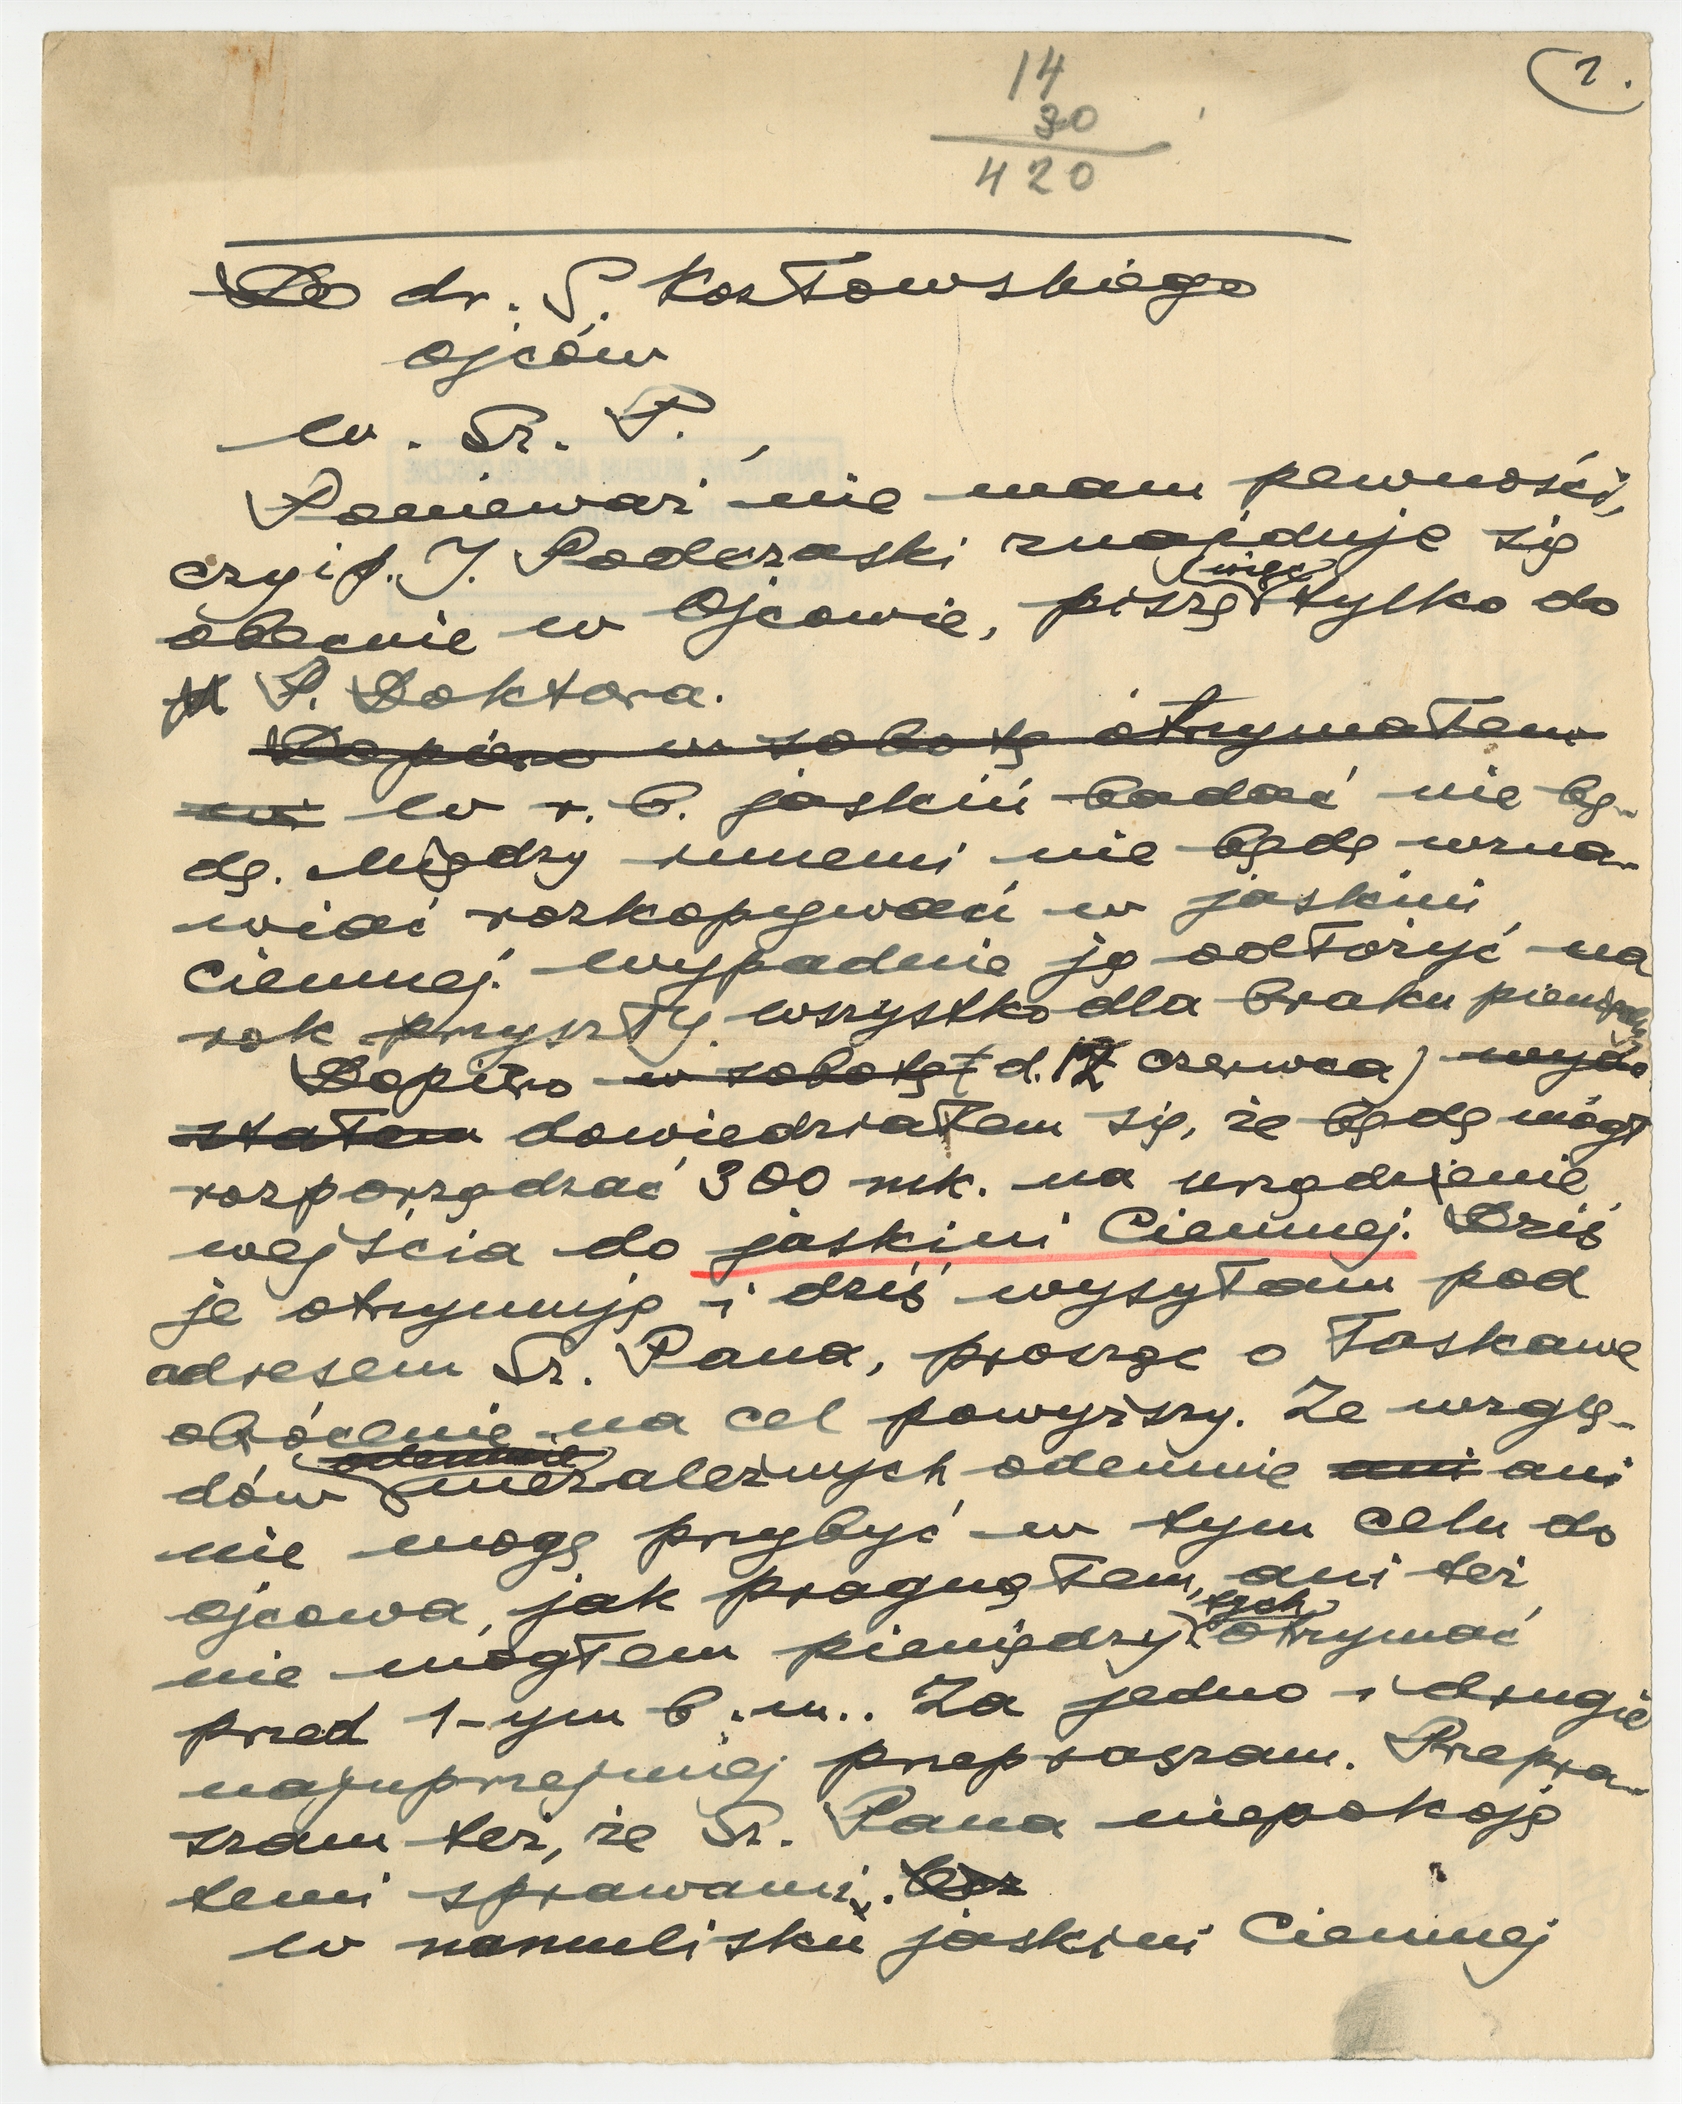 1.
14
30
420
Do dr. S. Kozłowskiego
Ojców
W. Sz. P.
Ponieważ nie mam pewności,
czy i p. J. Podczaski znajduje się
obecnie w Ojcowie, piszę więc tylko do
P. Doktora.
Dopiero w sobotę otrzymałem
W r. b. jaskiń badać nie bę-
dę. Między innemi nie będę wzna-
wiać rozkopywań w jaskini
Ciemnej. Wypadnie ją odłożyć na
rok przyszły. Wszystko dla braku pieniędzy
Dopiro w sobotę (d. 12 czerwca) wydo
stałem dowiedziałem się, że będę mógł
rozporządzać 300 mk. na urządzenie
wejścia do jaskini Ciemnej. Dziś
je otrzymuję i dziś wysyłam pod
adresem Sz. Pana, prosząc o łaskawe
obrócenie na cel powyższy. Ze wzglę-
dów odemnie niezależnych odemnie ani ani
nie mogę przybyć w tym celu do
Ojcowa, jak pragnąłem, ani też
nie mogłem pieniędzy tych otrzymać
przed 1-ym b. m.. Za jedno i drugie
najuprzejmiej przepraszam. Przepra-
szam też, że Sz. Pana niepokoję
temi sprawami.
W namulisku jaskini Ciemnej